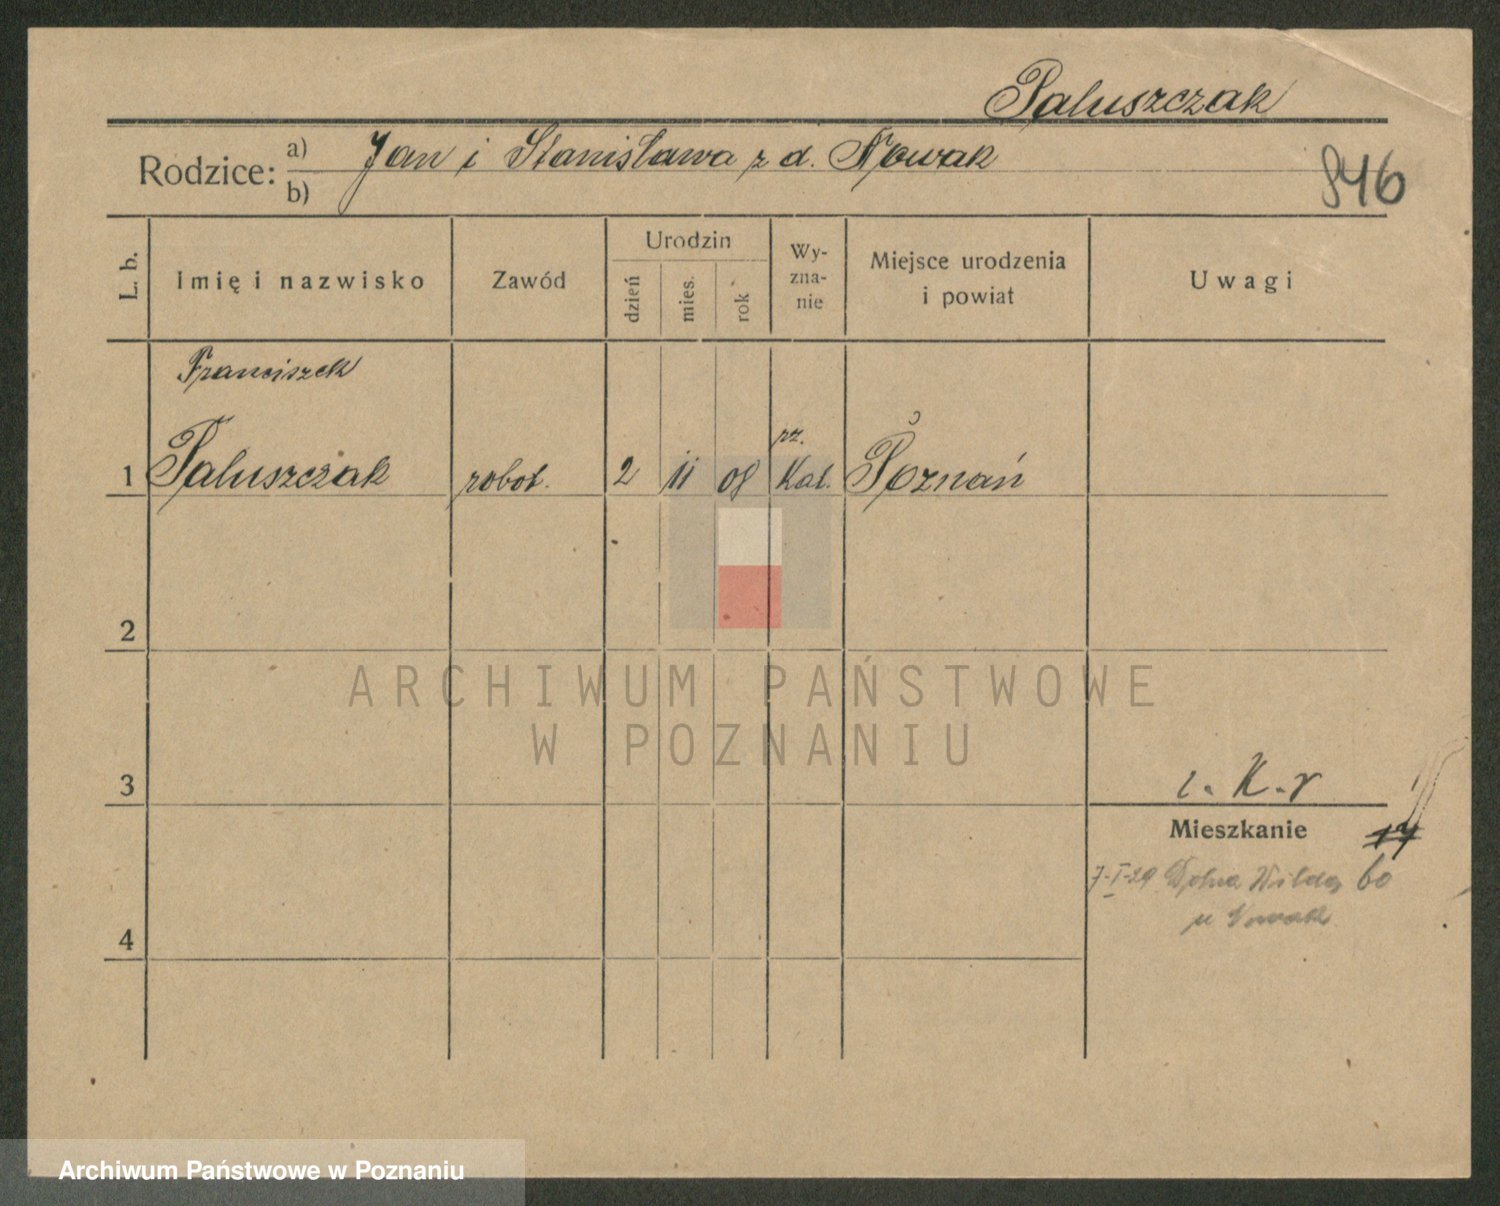 Paluszczak
Rodzice: a) Jan i Stanisława z d. Nowak
b)
846
L. b.
Imię i nazwisko
Zawód
Urodzin
dzień
mies.
rok
Wy-
zna-
nie
Miejsce urodzenia
i powiat
Uwagi
Franciszek
1 Paluszczak robot. 2 11 08 rz. Kat. Poznań
2
ARCHIWUM PAŃSTWOWE
W POZNANIU
3
Mieszkanie
17
7-I-29 Dolna Wilda 60
u Nowak
4
Archiwum Państwowe w Poznaniu